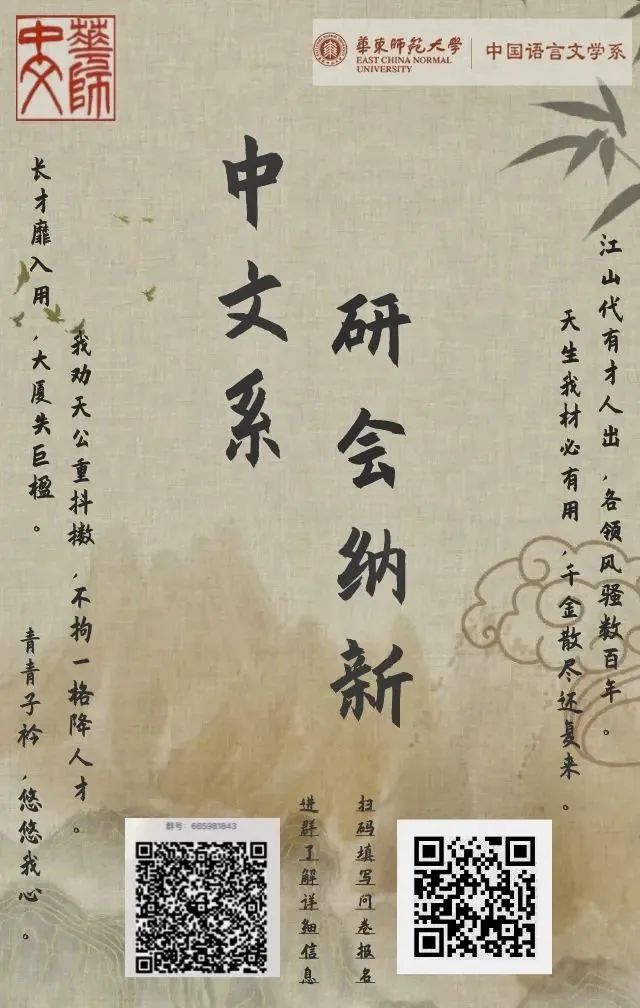 華師
中文
華東師範大學
EAST CHINA NORMAL
UNIVERSITY
中国语言文学系
中文系
研会纳新
江山代有才人出，各领风骚数百年。
天生我材必有用，千金散尽还复来。
我劝天公重抖擞，不拘一格降人才。
长才靡入用，大厦失巨楹。
青青子衿，悠悠我心。
扫码填写问卷报名
进群了解详细信息
群号：665981843